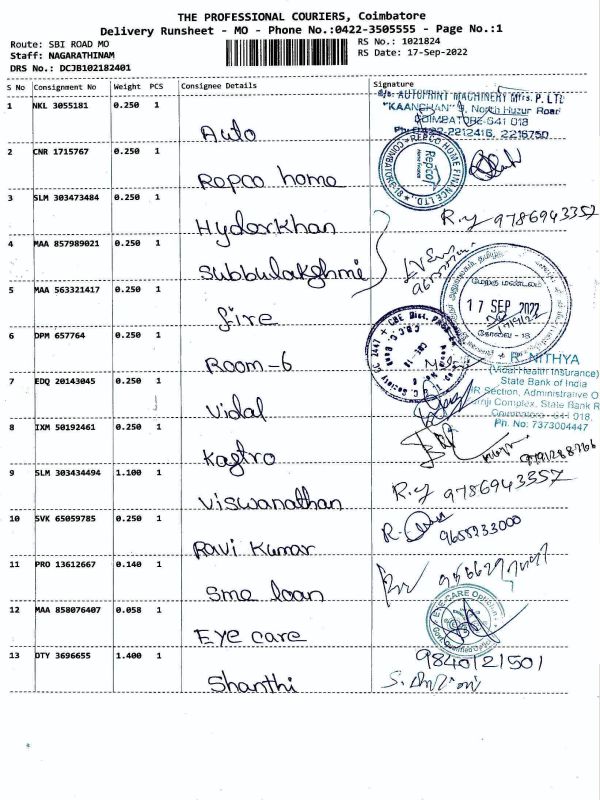 THE PROFESSIONAL COURIERS, Coimbatore
Delivery Runsheet - MO - Phone No.:0422-3505555 - Page No.:1
Route: SBI ROAD MO
RS No.: 1021824
Staff: NAGARATHINAM
RS Date: 17-Sep-2022
DRS No.: DCJB102182401
S No Consignment No Weight PCS Consignee Details Signature
1 NKL 3055181 0.250 1 Auto
AUTOPRINT MACHINERY Mfrs. P. LTD
"KAANCHAN" 9, North Huzur Road
COIMBATORE-641 018
2212416, 2216750
2 CNR 1715767 0.250 1 Repco home
REPCO HOME FINANCE LTD.
COIMBATORE-641018
Repco
3 SLM 303473484 0.250 1 Hyderkhan
R.y 9786943357
4 MAA 857989021 0.250 1 Subbulakshmi
5 MAA 563321417 0.250 1 fire
மேற்கு மண்டலம்
17 SEP 2022
கோவை - 18
6 DPM 657764 0.250 1 Room-6
R. NITHYA
(Vidal Health Insurance)
State Bank of India
HR Section, Administrative O
State Bank R
Coimbatore - 641 018.
Ph. No: 7373004447
7 EDQ 20143045 0.250 1 Vidal
8 IXM 50192461 0.250 1 Kagtro
9791288766
9 SLM 303434494 1.100 1 Viswanathan
R.y 9786943357
10 SVK 65059785 0.250 1 Ravi Kumar
9655933000
11 PRO 13612667 0.140 1 Sme loan
12 MAA 858076407 0.058 1 Eye care
EYE CARE
13 DTY 3696655 1.400 1 Shanthi
9840121501